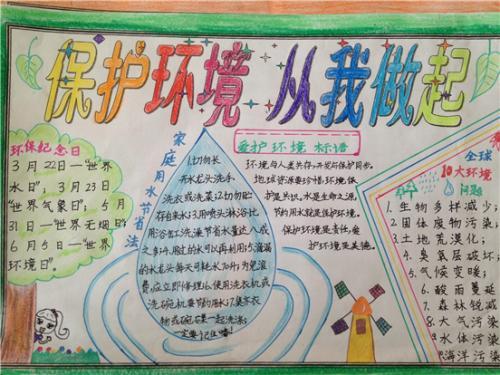 保护环境 从我做起
环保纪念日
3月22日—"世界
水日"; 3月23日
"世界气象日"; 5月
31日—"世界无烟日";
6月5日—"世界
环境日"。
家庭用水节省法
1.切勿长
开水龙头洗手、
洗衣或洗菜;2.切勿贮
存自来水;3.用喷头淋浴比
用浴缸洗澡节省水量达八成
之多;4.用过的水可以再利用;5.滴漏
的水龙头每天可耗水70升,为免浪
费,应立即修理;6.使用洗衣机或
洗碗机要节约用水;7.集齐衣
物或碗碟一起洗涤;
爱护环境 标语
环境与人类共存,开发与保护同步。
地球资源要珍惜,环境保
护是共识,水是生命之源,
节约用水就是保护环境。
保护环境是责任,爱
护环境是美德。
全球
10大环境
问题
1、生物多样减少;
2、固体废物污染
3、土地荒漠化;
4、臭氧层破坏;
5、气候变暖;
6、酸雨蔓延
7、森林锐减
8、大气污染
水体污染
海洋污染